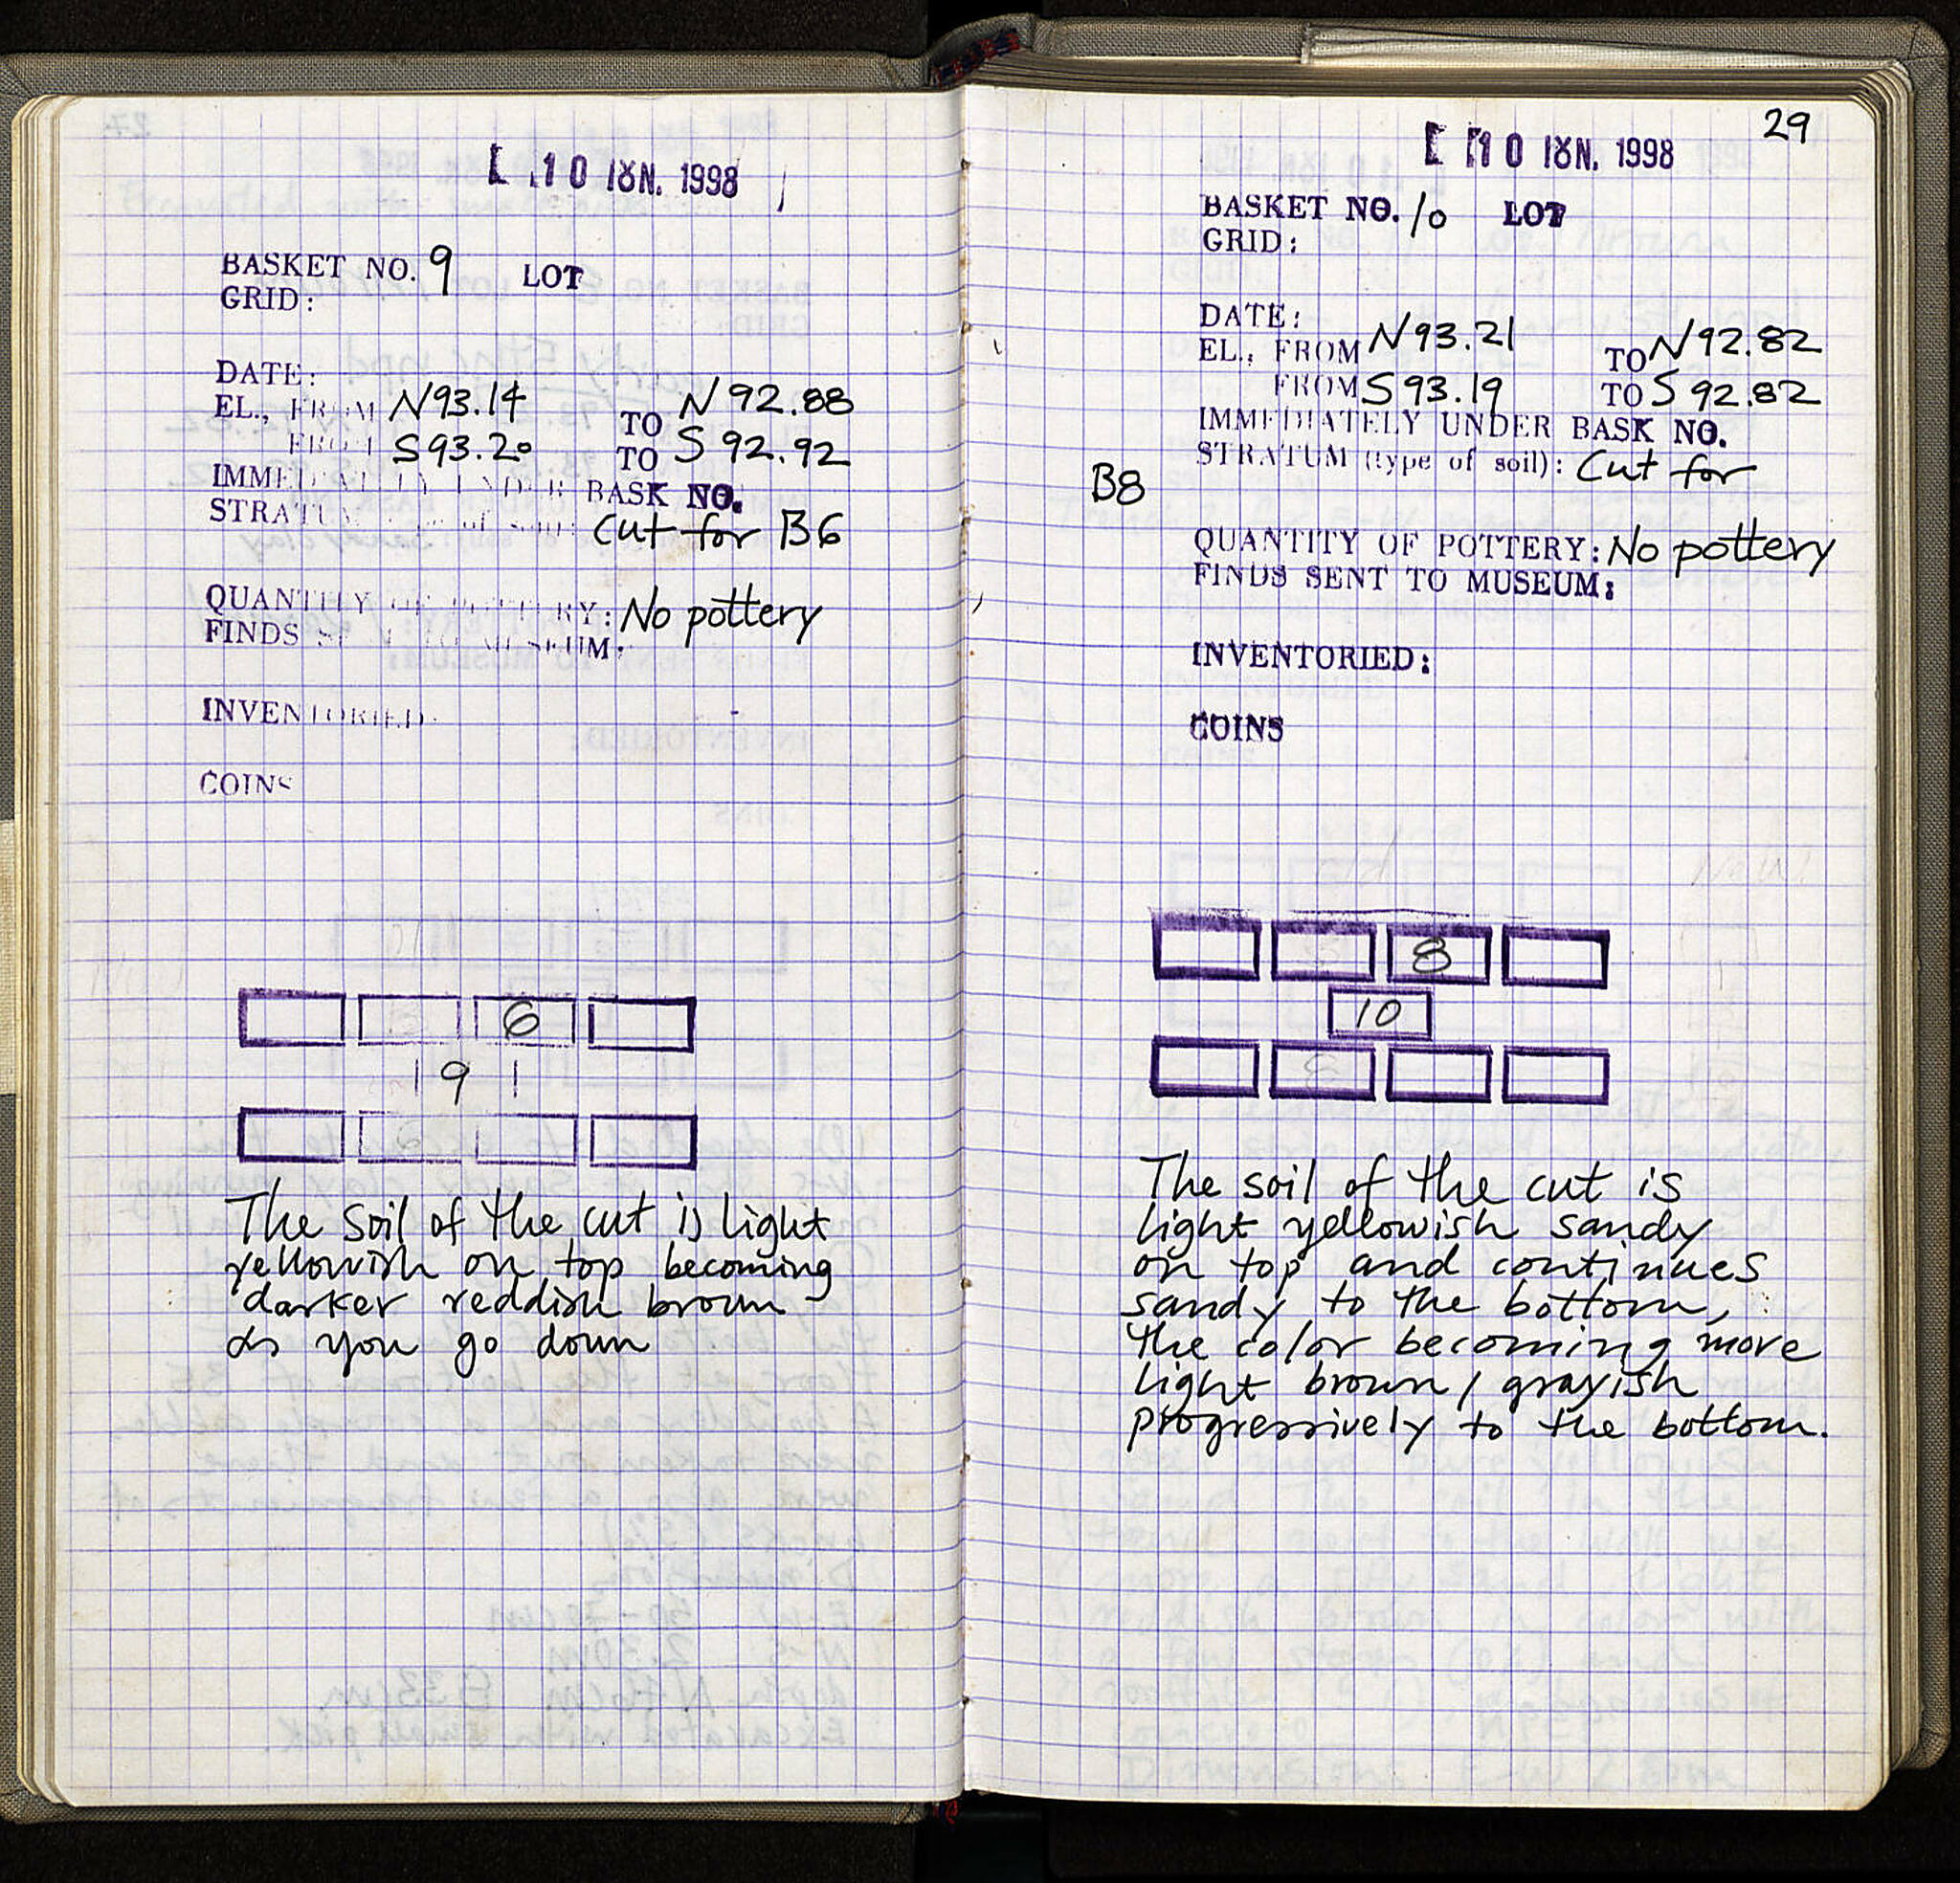 10 ΙΟΥΝ. 1998
BASKET NO. 9 LOT
GRID:
DATE:
EL., FROM N93.14 TO N 92.88
FROM S93.20 TO S 92.92
IMMEDIATELY UNDER BASK NO.
STRATUM (type of soil): Cut for B6
QUANTITY OF POTTERY: No pottery
FINDS SENT TO MUSEUM:
INVENTORIED:
COINS
6
9
The soil of the cut is light
yellowish on top becoming
darker reddish brown
as you go down
29
10 ΙΟΥΝ. 1998
BASKET NO. 10 LOT
GRID:
DATE:
EL., FROM N93.21 TO N92.82
FROM S93.19 TO S 92.82
IMMEDIATELY UNDER BASK NO.
STRATUM (type of soil): Cut for
B8
QUANTITY OF POTTERY: No pottery
FINDS SENT TO MUSEUM:
INVENTORIED:
COINS
8
10
The soil of the cut is
light yellowish sandy
on top and continues
sandy to the bottom,
the color becoming more
light brown / grayish
progressively to the bottom.